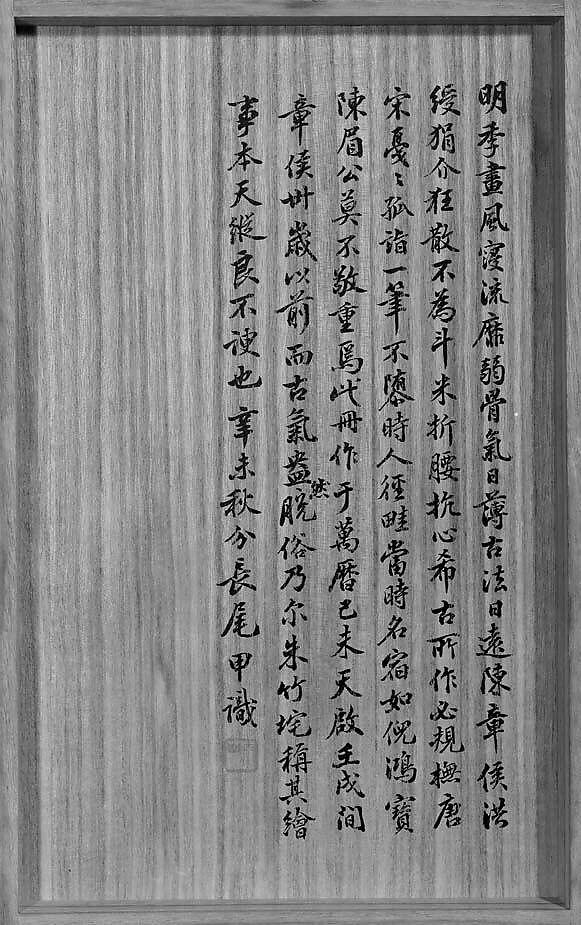 明季畫風寖流靡弱骨氣日薄古法日遠陳章侯洪
綬狷介狂散不為斗米折腰抗心希古所作必規橅唐
宋戞〻孤詣一筆不隳時人徑畦當時名宿如倪鴻寶
陳眉公莫不敬重焉此冊作于萬曆己未天啟壬戌間
章侯卅歲以前而古氣盎然脫俗乃尔朱竹垞稱其繪
事本天縱良不諛也辛未秋分長尾甲識